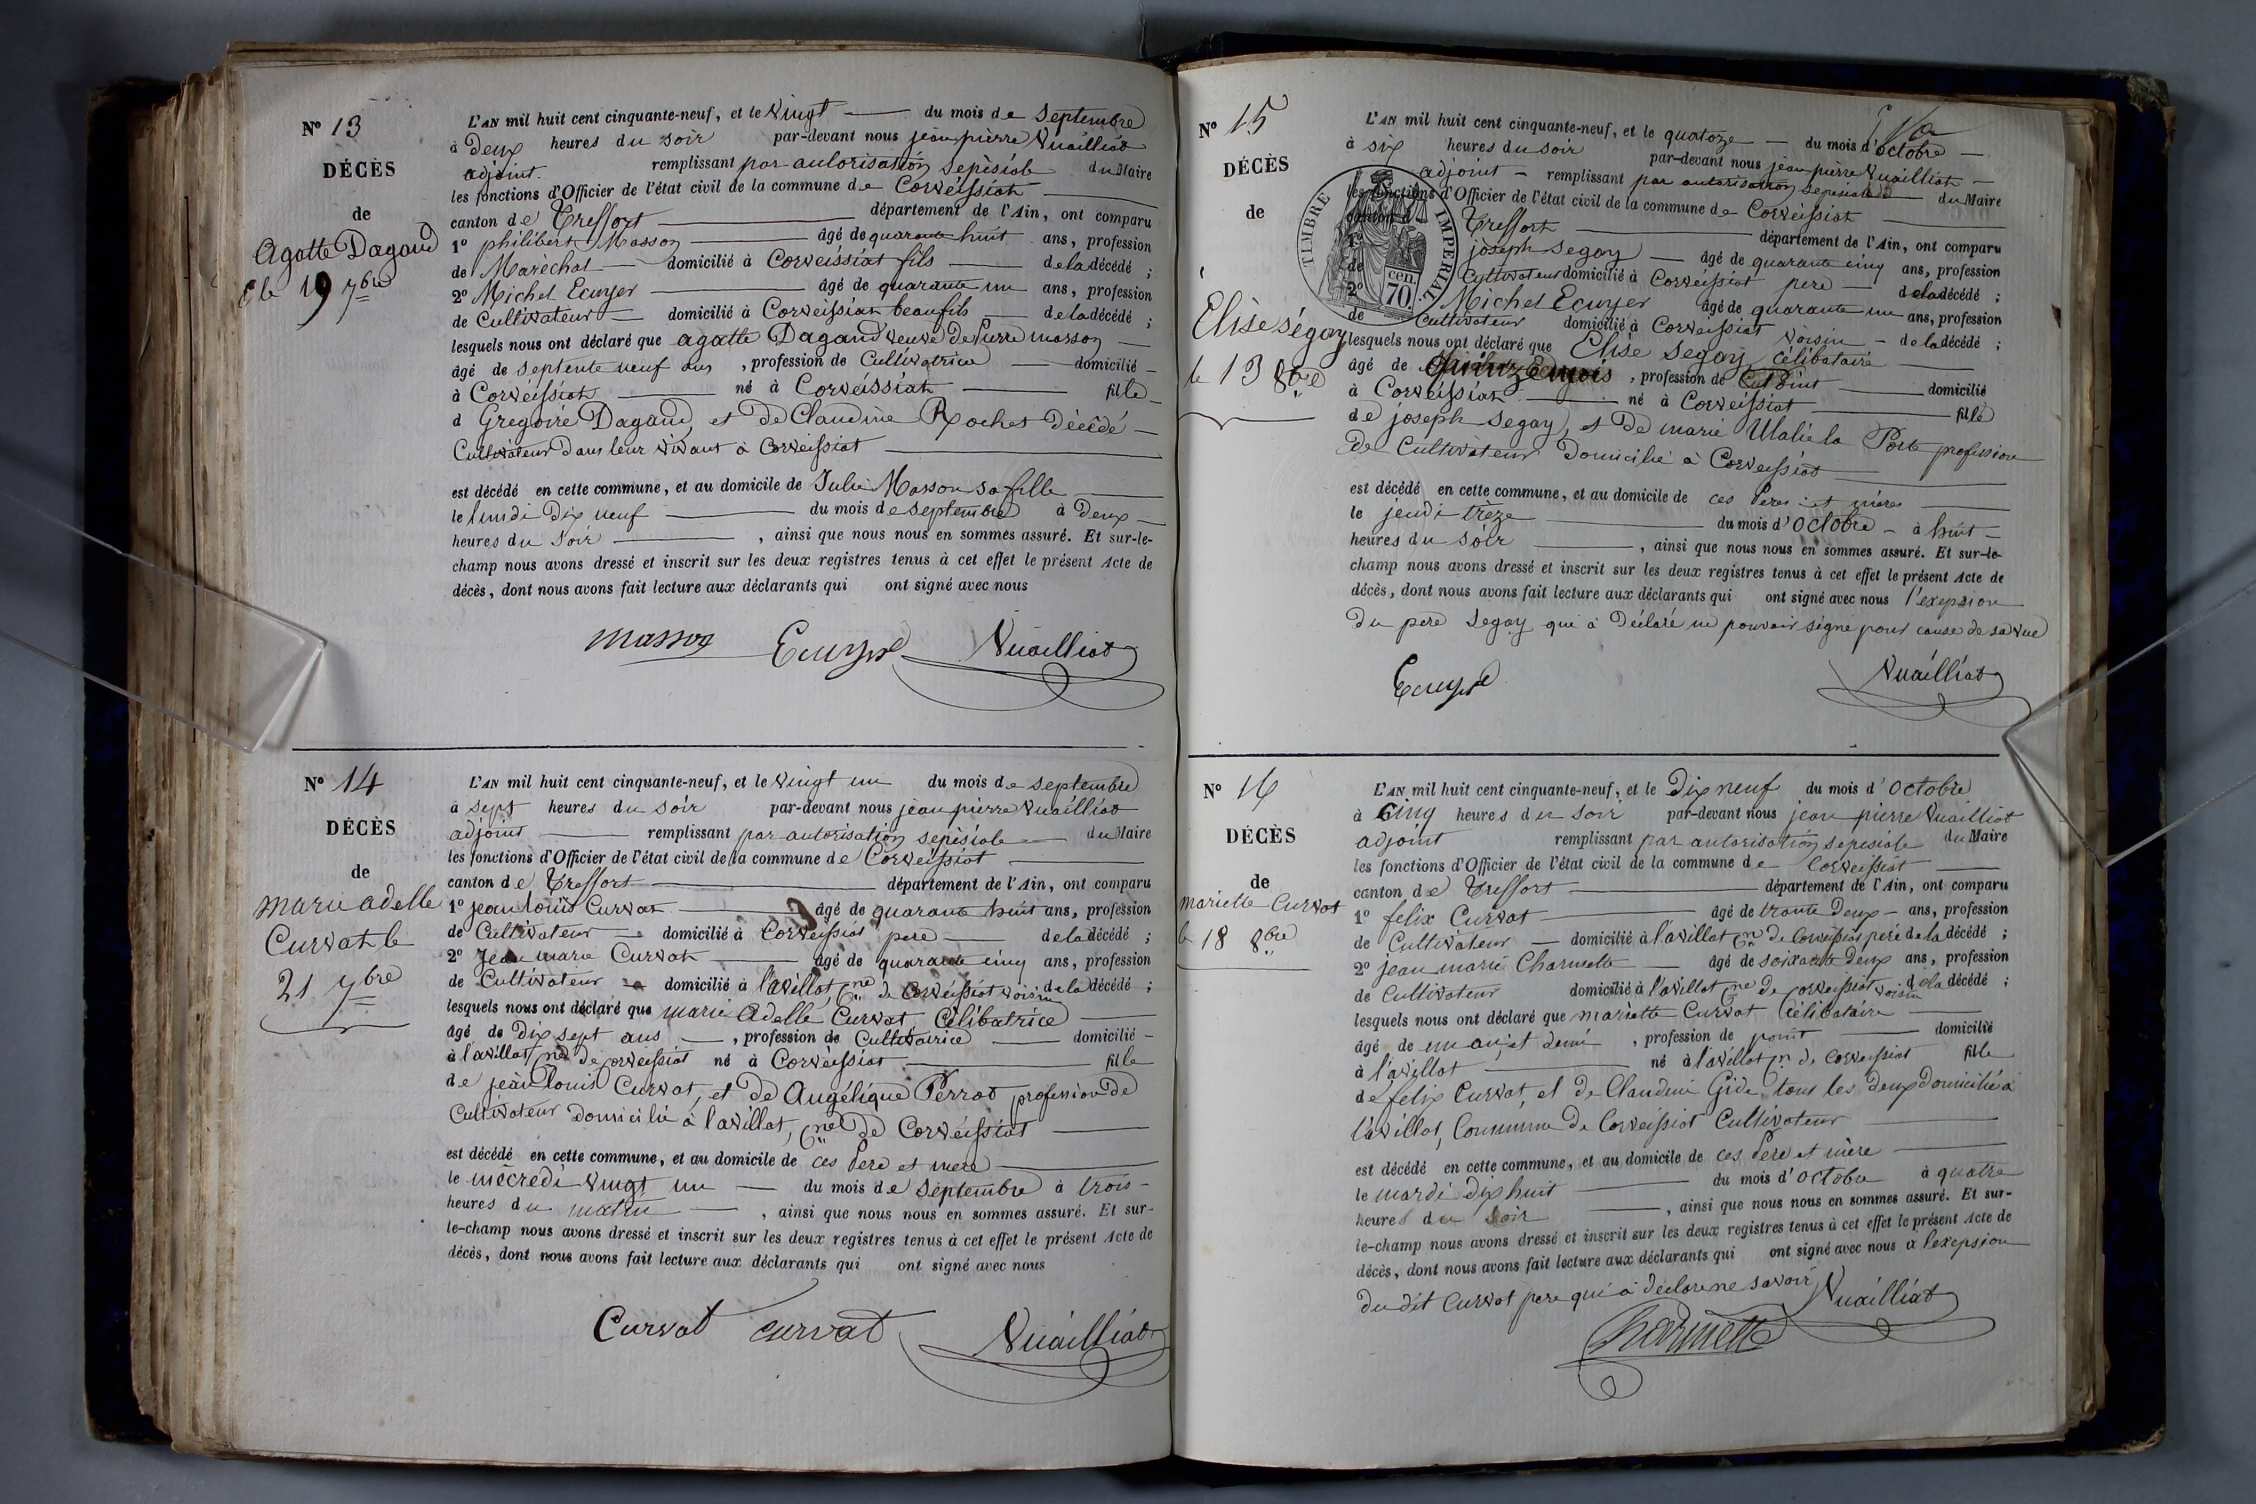 N° 13
DÉCÈS
de
Agatte Dagand
le 19 7bre
L'AN mil huit cent cinquante-neuf, et le vingt du mois de septembre
à Deux heures du soir par-devant nous jean pierre Vuailliat
adjoint. remplissant par autorisation sepésiale du Maire
les fonctions d'Officier de l'état civil de la commune de Corveissiat
canton de Treffort département de l'Ain, ont comparu
1° philibert Masson âgé de quarante huit ans, profession
de Maréchal domicilié à Corveissiat fils de la décédé ;
2° Michel Ecuyer âgé de quarante un ans, profession
de Cultivateur domicilié à Corveissiat beaufils de la décédé ;
lesquels nous ont déclaré que agatte Dagand veuve De Pierre masson
âgé de septente neuf ans , profession de Cultivatrice domicilié
à Corveissiat né à Corveissiat fille
d Gregoire Dagand, et de Claudine Rochet Décédé
Cultivateur Dans leur vivant à Corveissiat
est décédé en cette commune, et au domicile de Julie Masson sa fille
le lundi Dix neuf du mois de septembre à Deux
heures du Soir , ainsi que nous nous en sommes assuré. Et sur-le-
champ nous avons dressé et inscrit sur les deux registres tenus à cet effet le présent Acte de
décès, dont nous avons fait lecture aux déclarants qui ont signé avec nous
Masson Ecuyer Vuailliat
N° 14
DÉCÈS
de
marie adelle
Curvat le
21 7bre
L'AN mil huit cent cinquante-neuf, et le vingt un du mois de septembre
à sept heures du soir par-devant nous jean pierre Vuailliat
adjoint remplissant par autorisation sepésiale du Maire
les fonctions d'Officier de l'état civil de la commune de Corveissiat
canton de Treffort département de l'Ain, ont comparu
1° jean louis Curvat âgé de quarante huit ans, profession
de Cultivateur domicilié à Corveissiat pere de la décédé ;
2° Jean marie Curvat âgé de quarante cinq ans, profession
de Cultivateur domicilié à l'avillat, Cne de Corveissiat voisin de la décédé ;
lesquels nous ont déclaré que marie Adelle Curvat Célibatrice
âgé de Dix sept ans , profession de Cultivatrice domicilié
à l'avillat Cne de Corveissiat né à Corveissiat fille
de jean louis Curvat, et de Angélique Perrod profession De
Cultivateur Domicilié à l'avillat, Cne De Corveissiat
est décédé en cette commune, et au domicile de ces Pere et mere
le mécredi vingt un du mois de septembre à trois
heures du matin , ainsi que nous nous en sommes assuré. Et sur-
le-champ nous avons dressé et inscrit sur les deux registres tenus à cet effet le présent Acte de
décès, dont nous avons fait lecture aux déclarants qui ont signé avec nous
Curvat curvat Vuailliat
N° 15
DÉCÈS
de
Elise ségay
le 13 8bre
TIMBRE IMPÉRIAL
cen. 70
L'AN mil huit cent cinquante-neuf, et le quatoze du mois d'octobre
à six heures du soir par-devant nous jean pierre Vuailliat
adjoint remplissant par autorisation sepésiale du Maire
les fonctions d'Officier de l'état civil de la commune de Corveissiat
canton de Treffort département de l'Ain, ont comparu
1° joseph segay âgé de quarante cinq ans, profession
de Cultivateur domicilié à Corveissiat pere de la décédé ;
2° Michel Ecuyer âgé de quarante un ans, profession
de Cultivateur domicilié à Corveissiat voisin de la décédé ;
lesquels nous ont déclaré que Elise Segay célibataire
âgé de quinze mois , profession de point domicilié
à Corveissiat né à Corveissiat fille
de joseph segay, et De marie Ulalie la Porte profession
de Cultivateur Domicilié à Corveissiat
est décédé en cette commune, et au domicile de ces Peres et méres
le jeudi trèze du mois d'Octobre à huit
heures du soir , ainsi que nous nous en sommes assuré. Et sur-le-
champ nous avons dressé et inscrit sur les deux registres tenus à cet effet le présent Acte de
décès, dont nous avons fait lecture aux déclarants qui ont signé avec nous l'exepsion
Du pere Segay qui a Déclaré ne pouvoir signe pour cause de sa vue
Ecuyer Vuailliat
N° 16
DÉCÈS
de
mariette Curvat
le 18 8bre
L'AN mil huit cent cinquante-neuf, et le Dix neuf du mois d'octobre
à Cinq heures du soir par-devant nous jean pierre Vuailliat
adjoint remplissant par autorisation sepesiale du Maire
les fonctions d'Officier de l'état civil de la commune de Corveissiat
canton de Treffort département de l'Ain, ont comparu
1° felix Curvat âgé de trante Deux ans, profession
de Cultivateur domicilié à l'avillat Cne De Corveissiat pere de la décédé ;
2° jean marie Charnette âgé de soixante Deux ans, profession
de Cultivateur domicilié à l'avillat Cne De Corveissiat voisin de la décédé ;
lesquels nous ont déclaré que mariette Curvat Célibataire
âgé de un an, et demi , profession de point domicilié
à l'avillat né à l'avillat Cn de Corveissiat fille
de felix Curvat, et de Claudine Gide tous les deux Domicilié à
l'avillat, Commune De Corveissiat Cultivateur
est décédé en cette commune, et au domicile de ces Pere et mère
le mardi Dix huit du mois d'octobre à quatre
heures du Soir , ainsi que nous nous en sommes assuré. Et sur-
le-champ nous avons dressé et inscrit sur les deux registres tenus à cet effet le présent Acte de
décès, dont nous avons fait lecture aux déclarants qui ont signé avec nous a l'exepsion
du dit Curvat pere qui à déclare ne savoir Vuailliat
Charnette